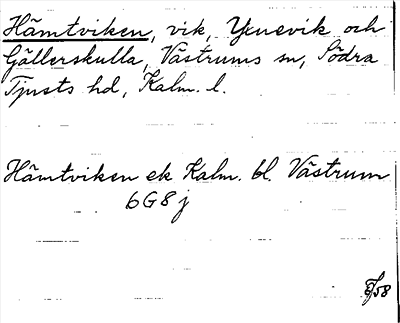 Hämtviken, vik, Yxnevik och
Gällerskulla, Västrums sn, Södra
Tjusts hd, Kalm. l.
Hämtviken ek Kalm. bl. Västrum
6G8j